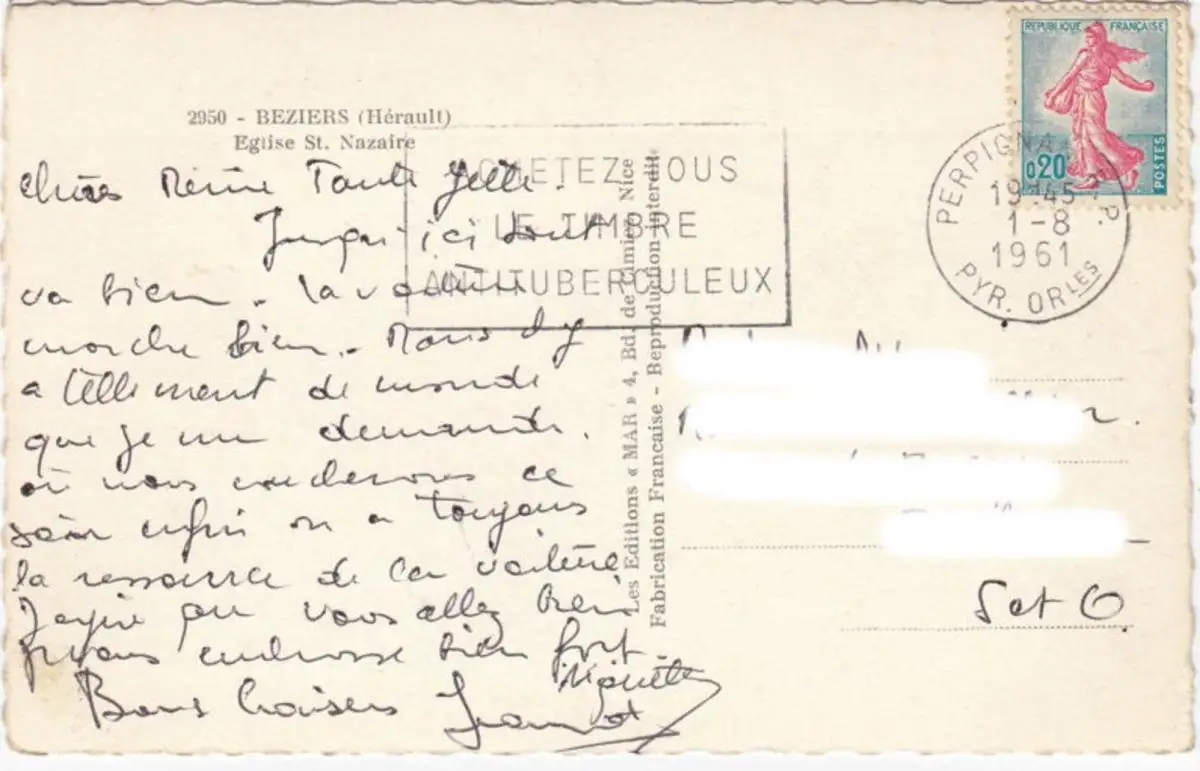 REPUBLIQUE FRANÇAISE
0,20
POSTES
2950 - BEZIERS (Hérault)
Eglise St. Nazaire
ACHETEZ TOUS
LE TIMBRE
ANTITUBERCULEUX
PERPIGNAN R.P.
19H45
1-8
1961
PYR. ORLES
chères Mémé Tante
Jusqu'ici tout
va bien. la voiture
marche bien. Mais il y
a tellement de monde
que je me demande.
où nous coucherons ce
soir enfin on a toujours
la ressource de la voiture
J'espère que vous allez bien
Je vous embrasse bien fort.
Bons baisers Jeannot
Les Editions « MAR » 4, Bd. de Cimiez, Nice
Fabrication Francaise - Reproduction interdite
S et O.